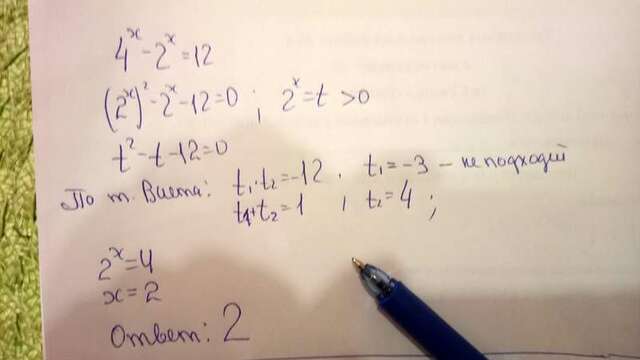 4^x - 2^x = 12
(2^x)^2 - 2^x - 12 = 0 ; 2^x = t > 0
t^2 - t - 12 = 0
По т. Виета: t₁·t₂ = -12 , t₁ = -3 – не подходит
t₁+t₂ = 1 , t₂ = 4 ;
2^x = 4
x = 2
Ответ: 2